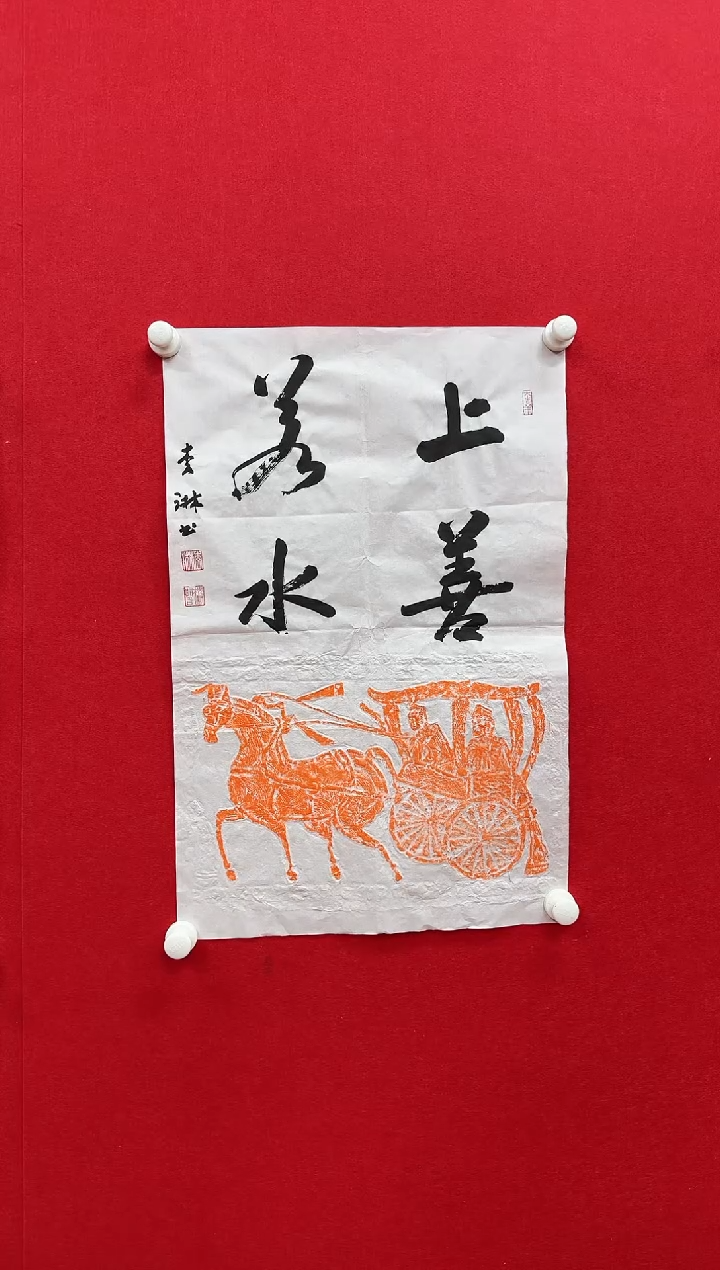 上善
若水
李琳书